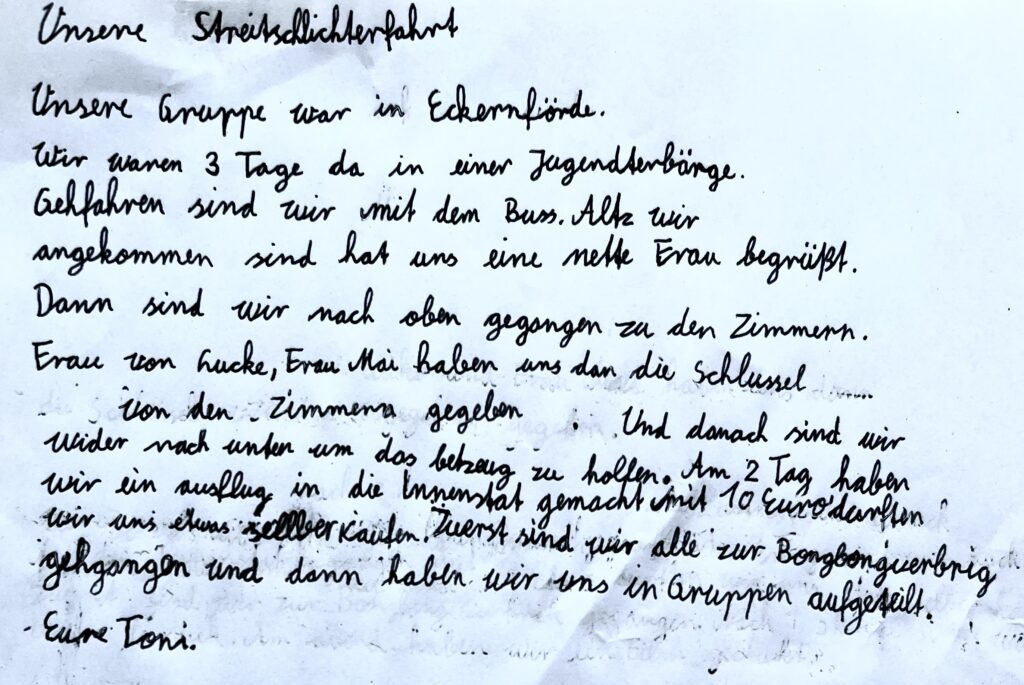 Unsere Streitschlichterfahrt
Unsere Gruppe war in Eckernförde.
Wir waren 3 Tage da in einer Jugendterbärge.
Gehfahren sind wir mit dem Buss. Altz wir
angekommen sind hat uns eine nette Erau begrüßt.
Dann sind wir nach oben gegangen zu den Zimmern.
Erau von Lucke, Erau Mai haben uns dan die Schlussel
von den Zimmern gegeben . Und danach sind wir
wider nach unten um das betzeug zu hollen. Am 2 Tag haben
wir ein ausflug in die Innenstat gemacht mit 10 Euro durften
wir uns etwas sellber kaufen. Zuerst sind wir alle zur Bongbongverbrig
gehgangen und dann haben wir uns in Gruppen aufgeteilt.
Eure Toni.